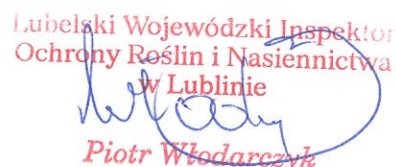 Lubelski Wojewódzki Inspektor
Ochrony Roślin i Nasiennictwa
w Lublinie
Piotr Włodarczyk